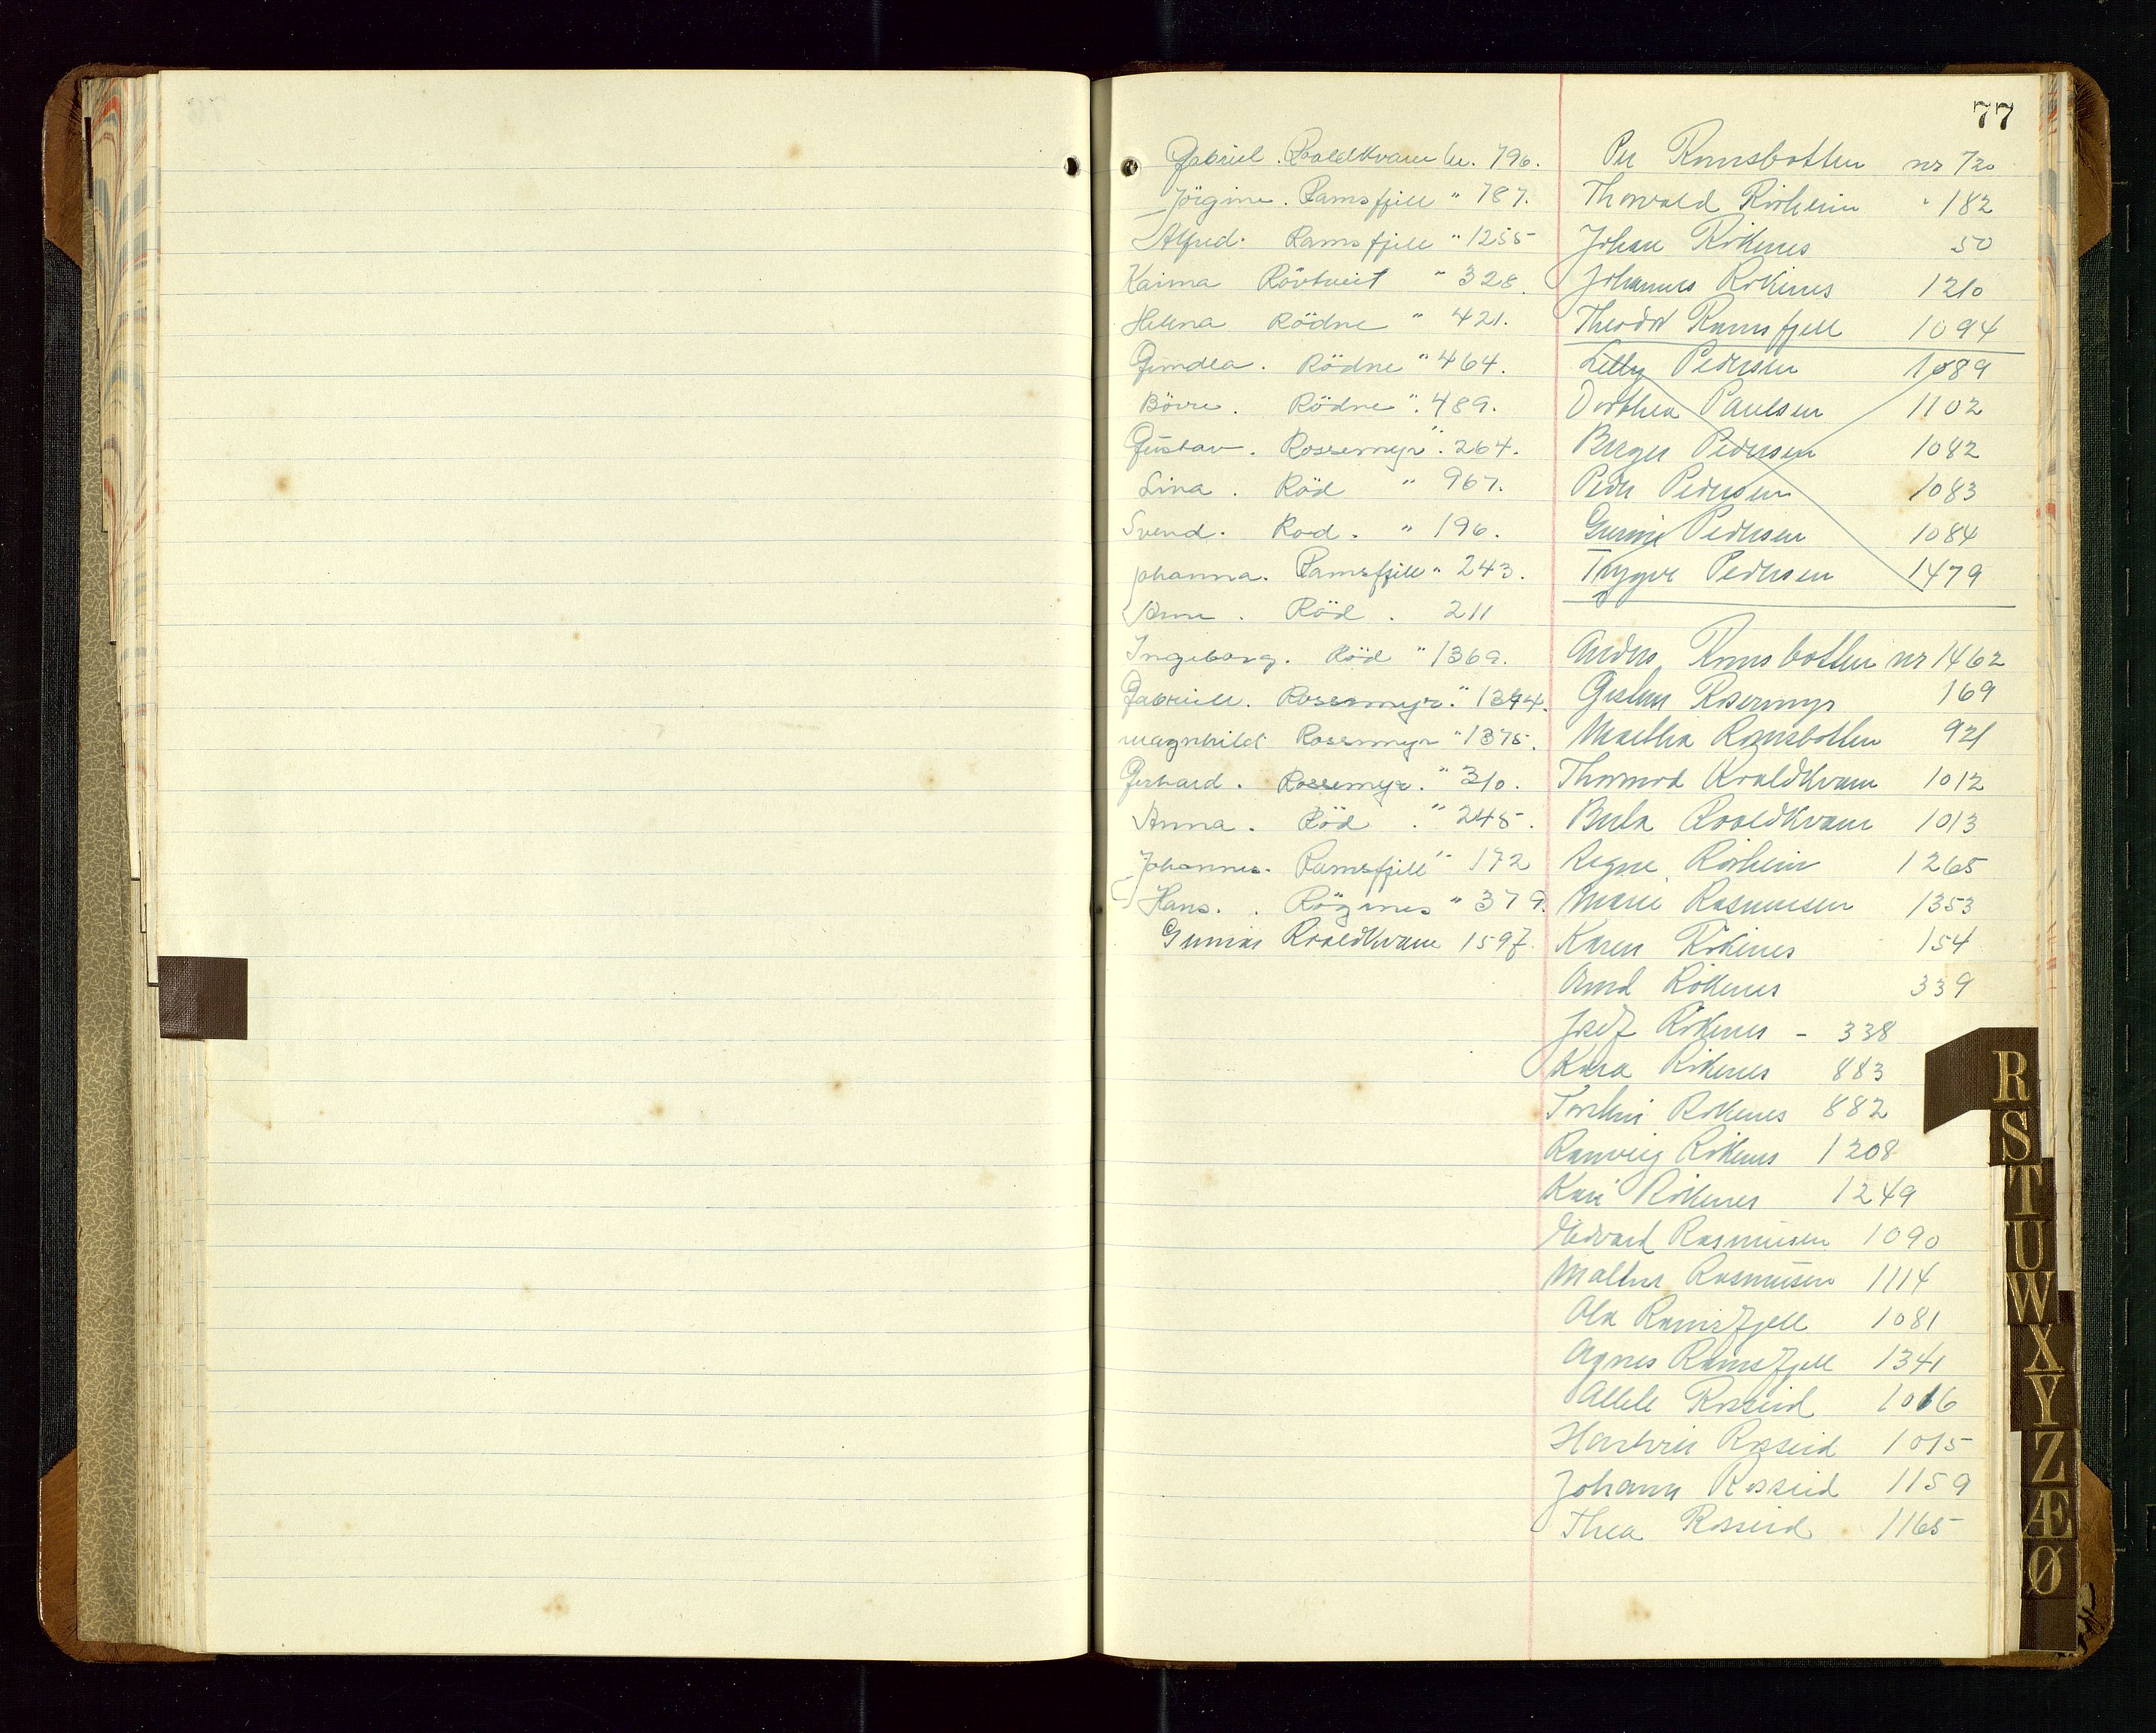 77
Gabriel . Roaldkvam Nr. 796.
Jörgine . Ramsfjell " 787.
Alfred . Ramsfjell " 1255
Kaima Rövtveit " 328.
Helena Rödne " 421.
Gundla . Rödne " 464.
Börre . Rödne ". 489.
Gustav . Rossemyr ". 264.
Lina . Röd " 967.
Svend . Rod . " 196.
Johanna . Ramsfjell " 243.
Anne . Röd . 211
Ingeborg . Röd " 1369.
Gabriell . Rossemyr ." 1394.
magnhild Rossmyr " 1375.
Gerhard . Rossemyr ." 310.
Anna . Röd ." 245.
Johannes . Ramsfjell " 172
Hans . . Rögnnes " 379.
Gunnar Roaldkvam 1597.
Per Ramsbotten nr 720
Thorvald Rörheim " 182
Johan Rökenes 50
Johannes Rökenes 1210
Theodor Ramsfjell 1094
Lilly Pedersen 1089
Dorthea Paulsen 1102
Birger Pedersen 1082
Peder Pedersen 1083
Gunni Pedersen 1084
Trygve Pedersen 1479
Anders Ramsbotten nr 1462
Rosemyr 169
Martha Ramsbotten 921
Thormod Roaldkvam 1012
Roaldkvam 1013
Signe Rörheim 1265
Marie Rasmussen 1353
Karen Rökenes 154
Arnd Rökenes 339
Josef Rökenes - 338
Kara Rökenes 883
Rökenes 882
Ranveig Rökenes 1208
Kari Rökenes 1249
Edvard Rasmusen 1090
Rasmusen 1114
Ola Ramsfjell 1081
Agnes Ramsfjell 1341
Rosseid 1016
Rosseid 1015
Johann Rosseid 1159
Thea Rosseid 1165
R
S
T
U
W
X
Y
Z
Æ
Ø